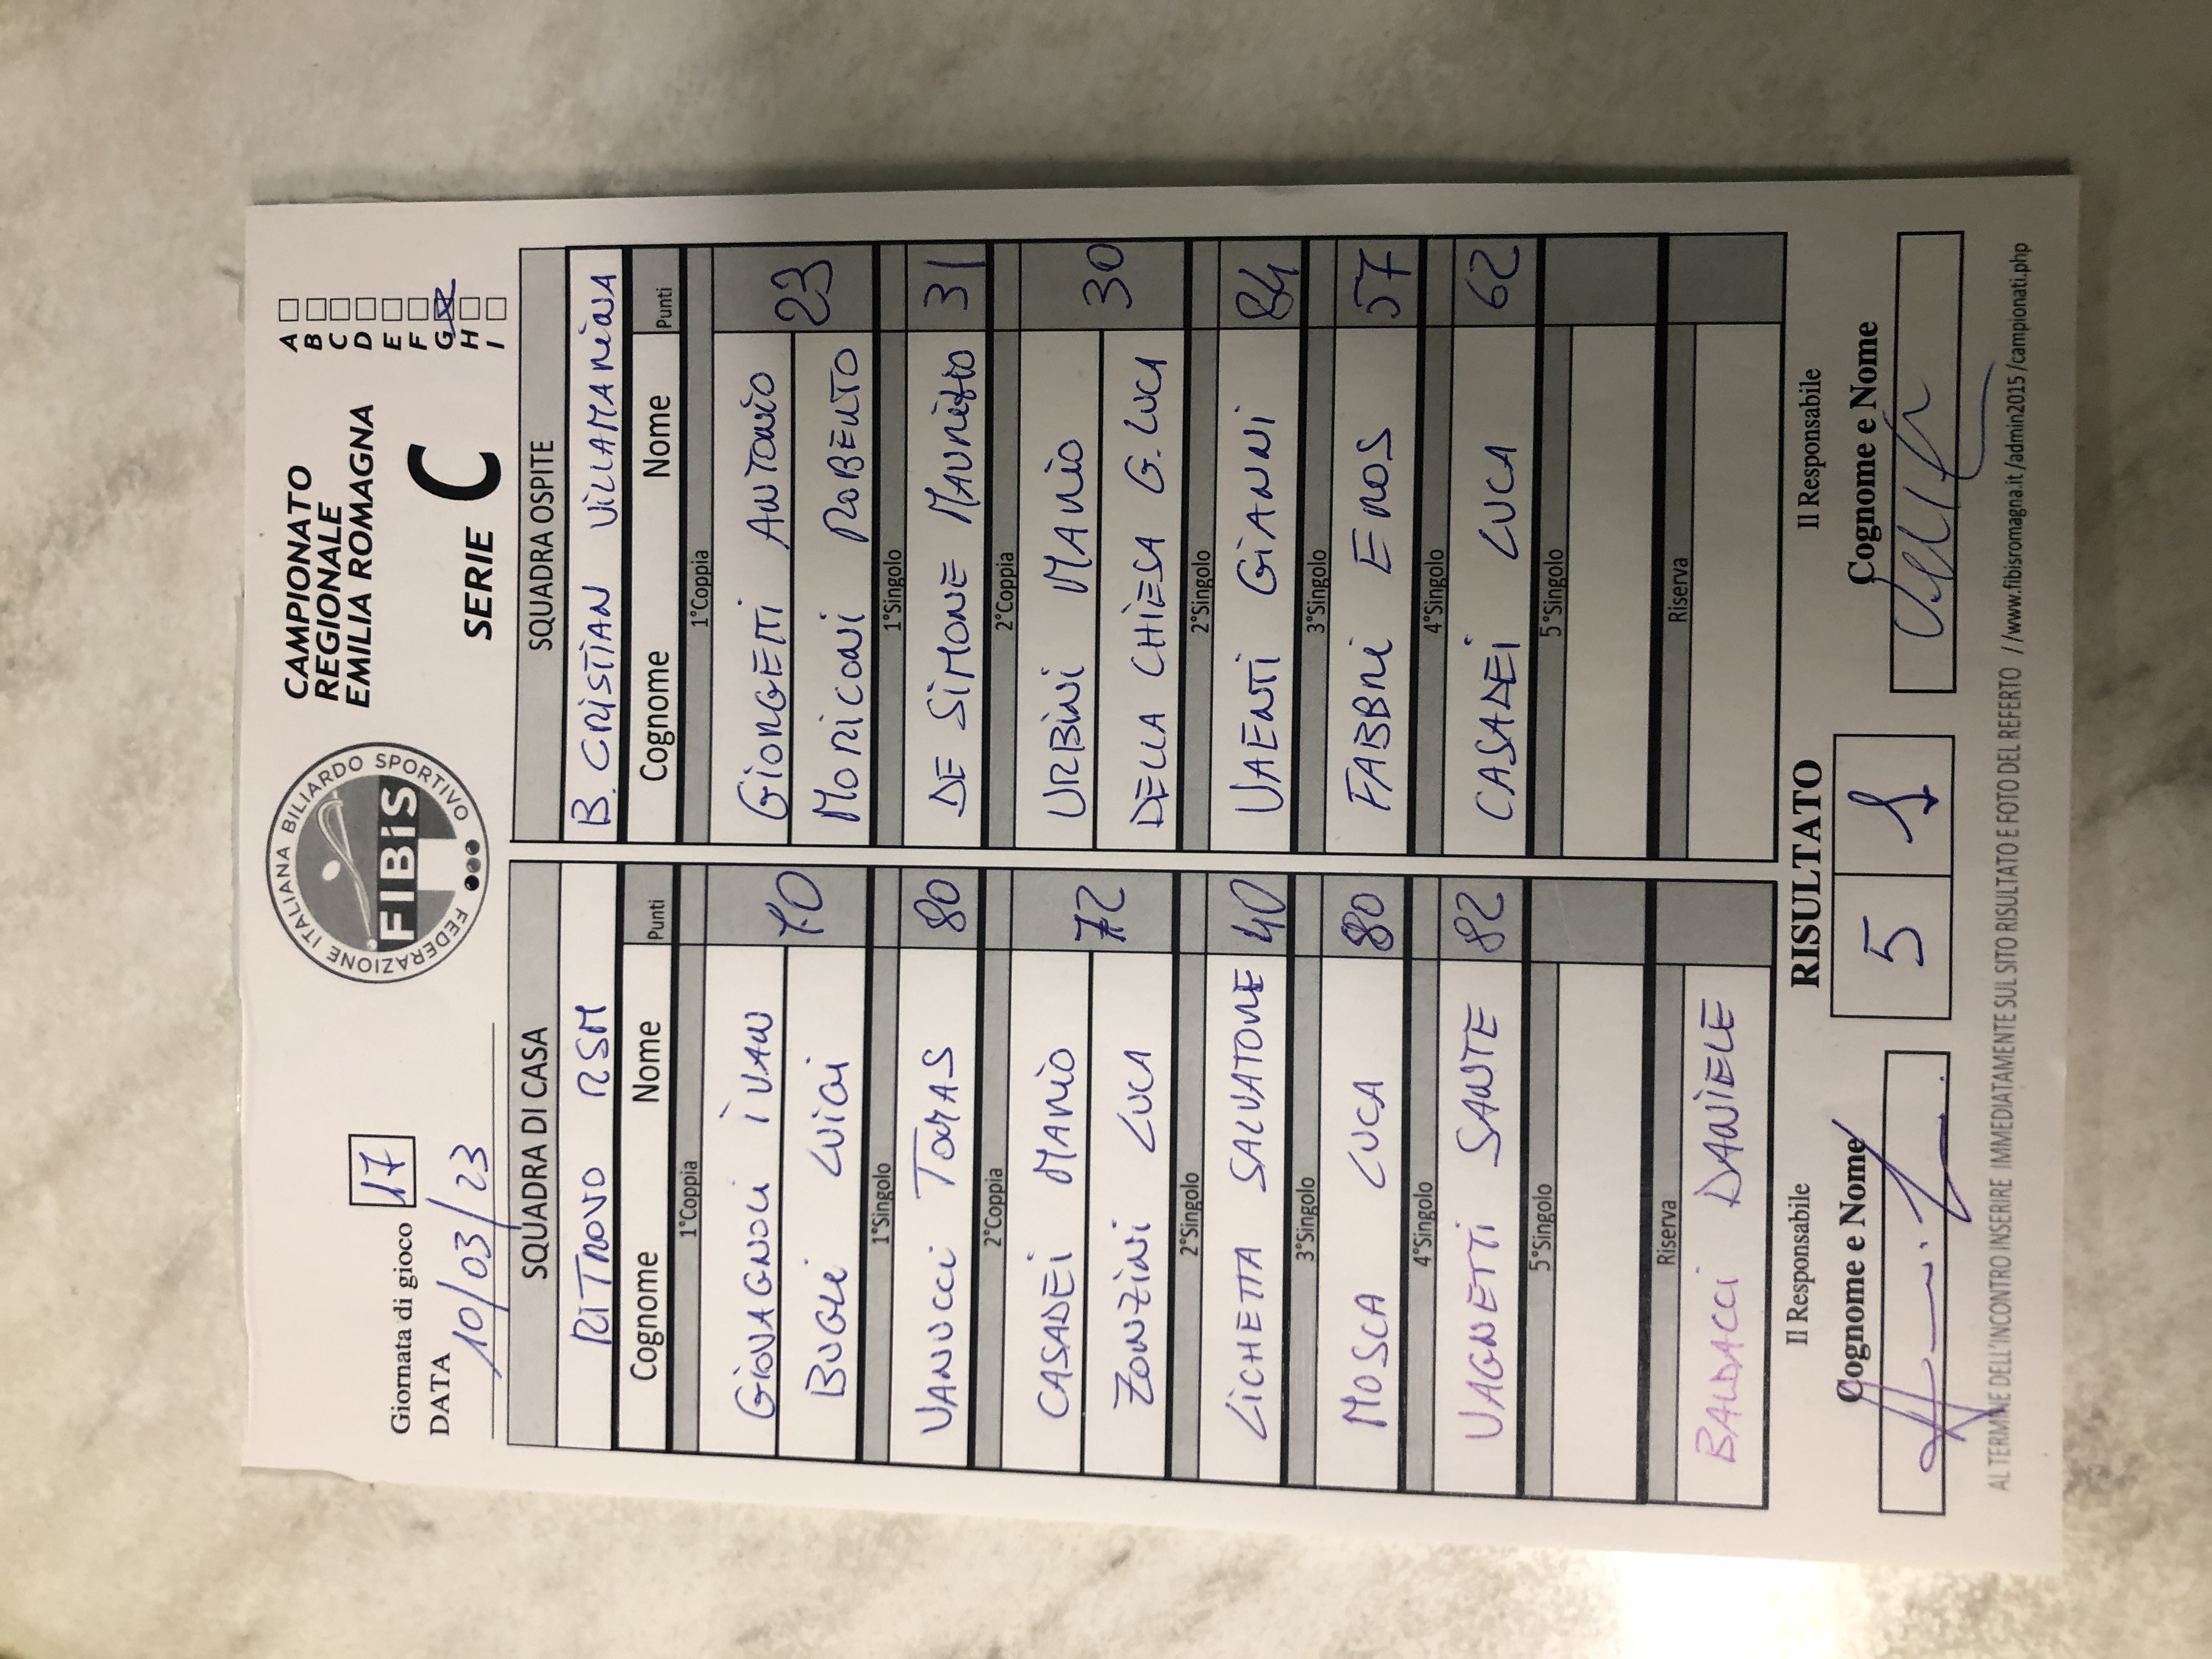 Giornata di gioco 17
DATA 10/03/23
FEDERAZIONE ITALIANA BILIARDO SPORTIVO
FIBiS
CAMPIONATO
REGIONALE
EMILIA ROMAGNA
SERIE C
A
B
C
D
E
F
G
H
I
SQUADRA DI CASA
RITROVO RSM
Cognome Nome Punti
1°Coppia
GIOVAGNOLI IVAN 70
BUGLI LUIGI
1°Singolo
VANUCCI TOMAS 80
2°Coppia
CASADEI MARIO 72
ZONZINI LUCA
2°Singolo
LICHETTA SALVATORE 40
3°Singolo
MOSCA LUCA 80
4°Singolo
VAGNETTI SANTE 82
5°Singolo
Riserva
BALDACCI DANIELE
SQUADRA OSPITE
B. CRISTIAN VILLAMARINA
Cognome Nome Punti
1°Coppia
GIORGETTI ANTONIO 23
MORICONI ROBERTO
1°Singolo
DE SIMONE MAURIZIO 31
2°Coppia
URBINI MARIO 30
DELLA CHIESA G. LUCA
2°Singolo
VAENTI GIANNI 84
3°Singolo
FABBRI EROS 57
4°Singolo
CASADEI LUCA 62
5°Singolo
Riserva
Il Responsabile
Cognome e Nome
RISULTATO
5 1
Il Responsabile
Cognome e Nome
AL TERMINE DELL'INCONTRO INSERIRE IMMEDIATAMENTE SUL SITO RISULTATO E FOTO DEL REFERTO //www.fibisromagna.it/admin2015/campionati.php